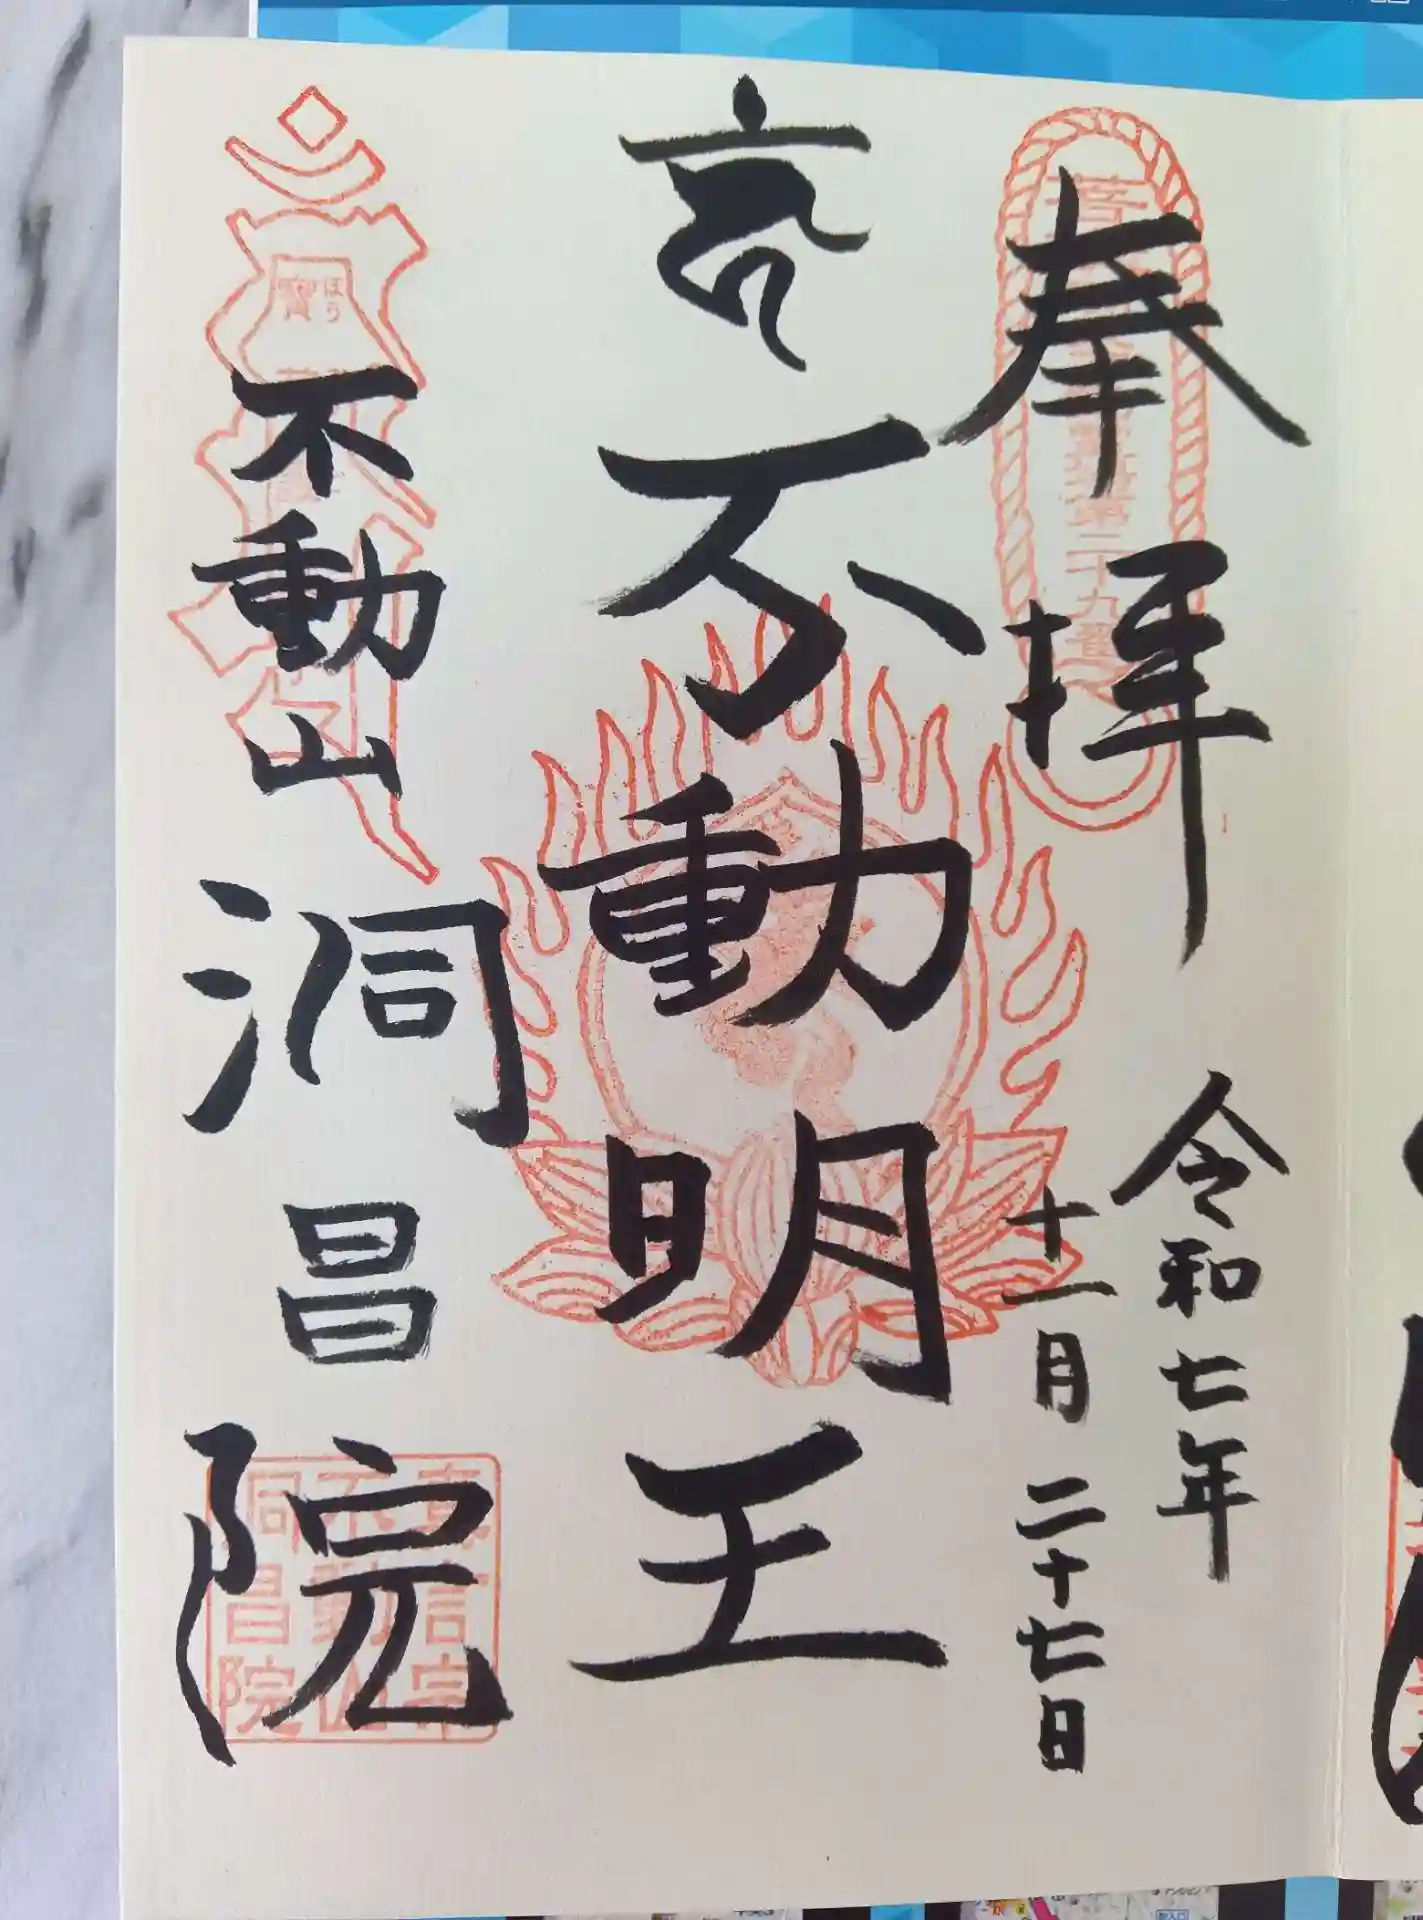 奉拝
令和七年
十一月二十七日
不動明王
不動山
洞昌院
第二十九番
ほう
真言宗
不動山
洞昌院